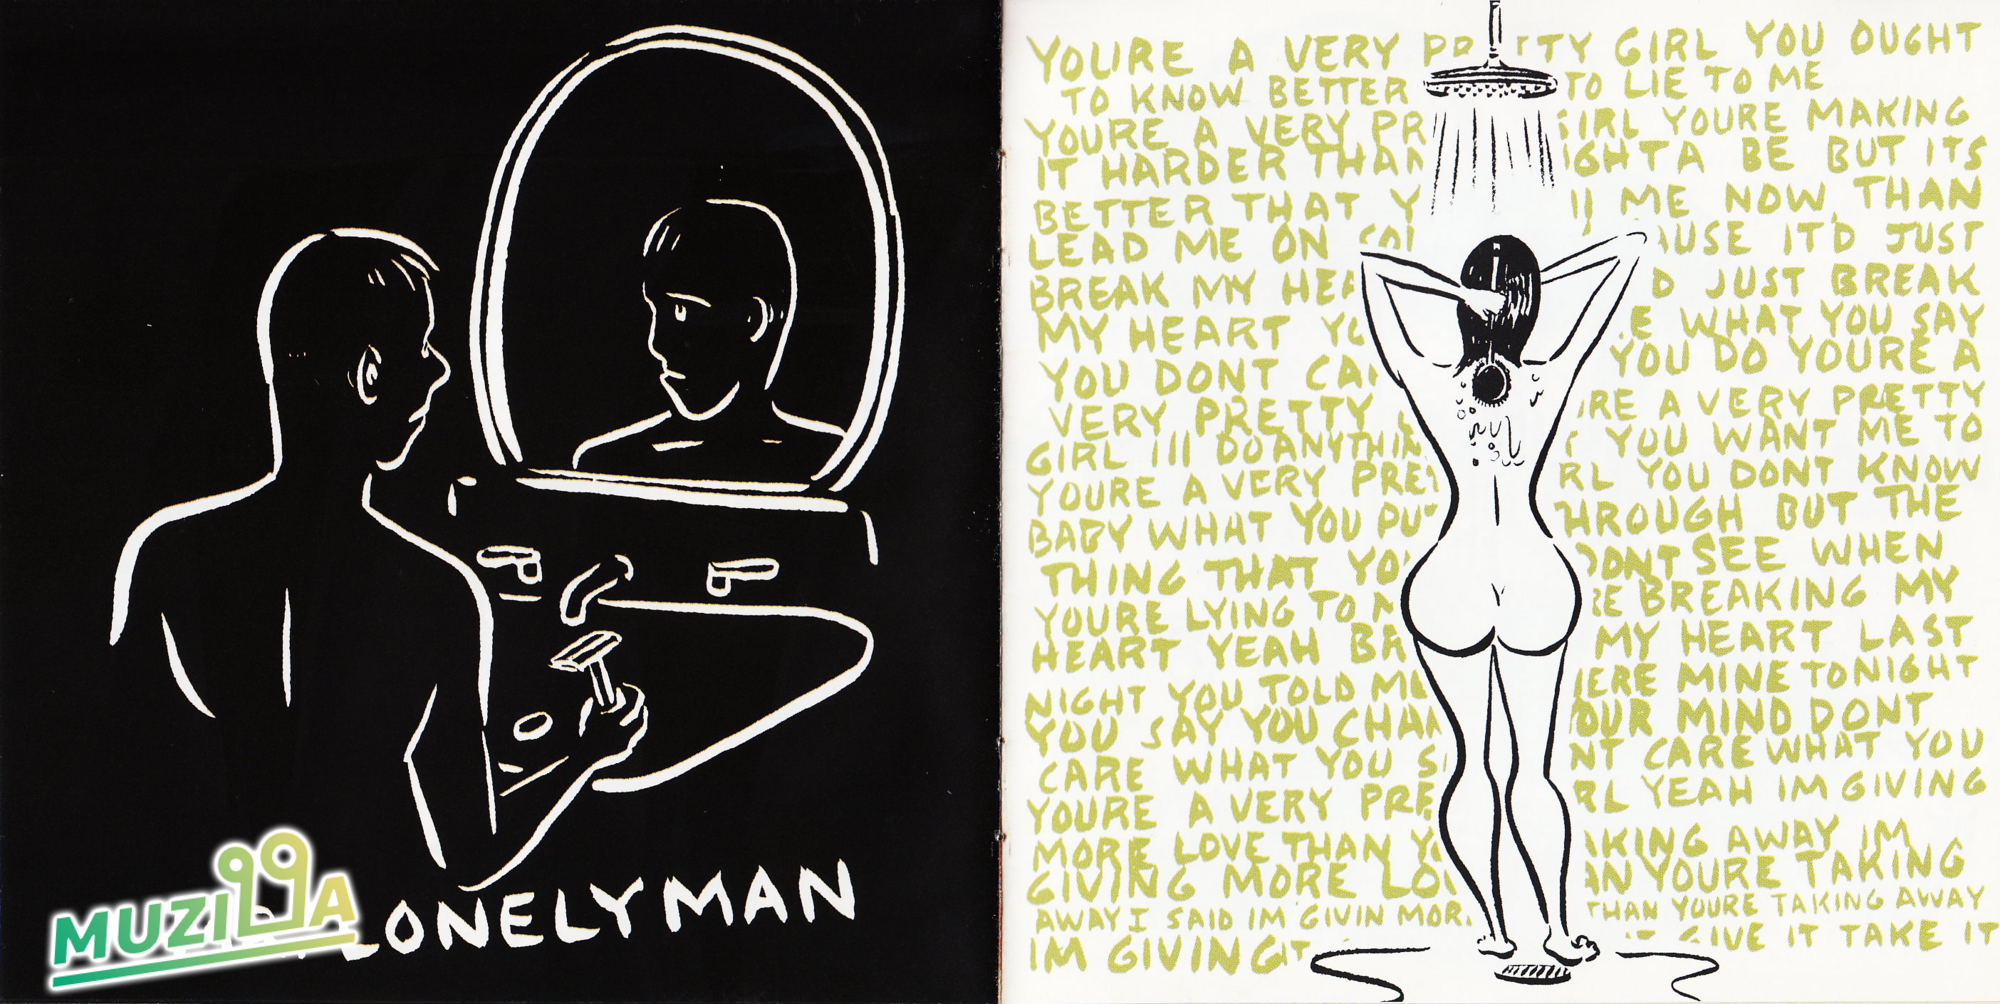 LONELY MAN
MUZILLA
YOURE A VERY PR TTY GIRL YOU OUGHT
TO KNOW BETTER TO LIE TO ME
YOURE A VERY PR IRL YOURE MAKING
IT HARDER THAN GHTA BE BUT ITS
BETTER THAT Y ME NOW THAN
LEAD ME ON AUSE ITD JUST
BREAK MY HEA D JUST BREAK
MY HEART YO E WHAT YOU SAY
YOU DONT CA YOU DO YOURE A
VERY PRETTY RE A VERY PRETTY
GIRL Ill DO ANYTHIN YOU WANT ME TO
YOURE A VERY PRE RL YOU DONT KNOW
BABY WHAT YOU PU HROUGH BUT THE
THING THAT YO DONT SEE WHEN
YOURE LYING TO M RE BREAKING MY
HEART YEAH BR MY HEART LAST
NIGHT YOU TOLD M ERE MINE TONIGHT
YOU SAY YOU CHAN OUR MIND DONT
CARE WHAT YOU S NT CARE WHAT YOU
YOURE A VERY PRE RL YEAH IM GIVING
MORE LOVE THAN YO AKING AWAY IM
GIVING MORE LO AN YOURE TAKING
AWAY I SAID IM GIVIN MOR THAN YOURE TAKING AWAY
IM GIVING IT GIVE IT TAKE IT